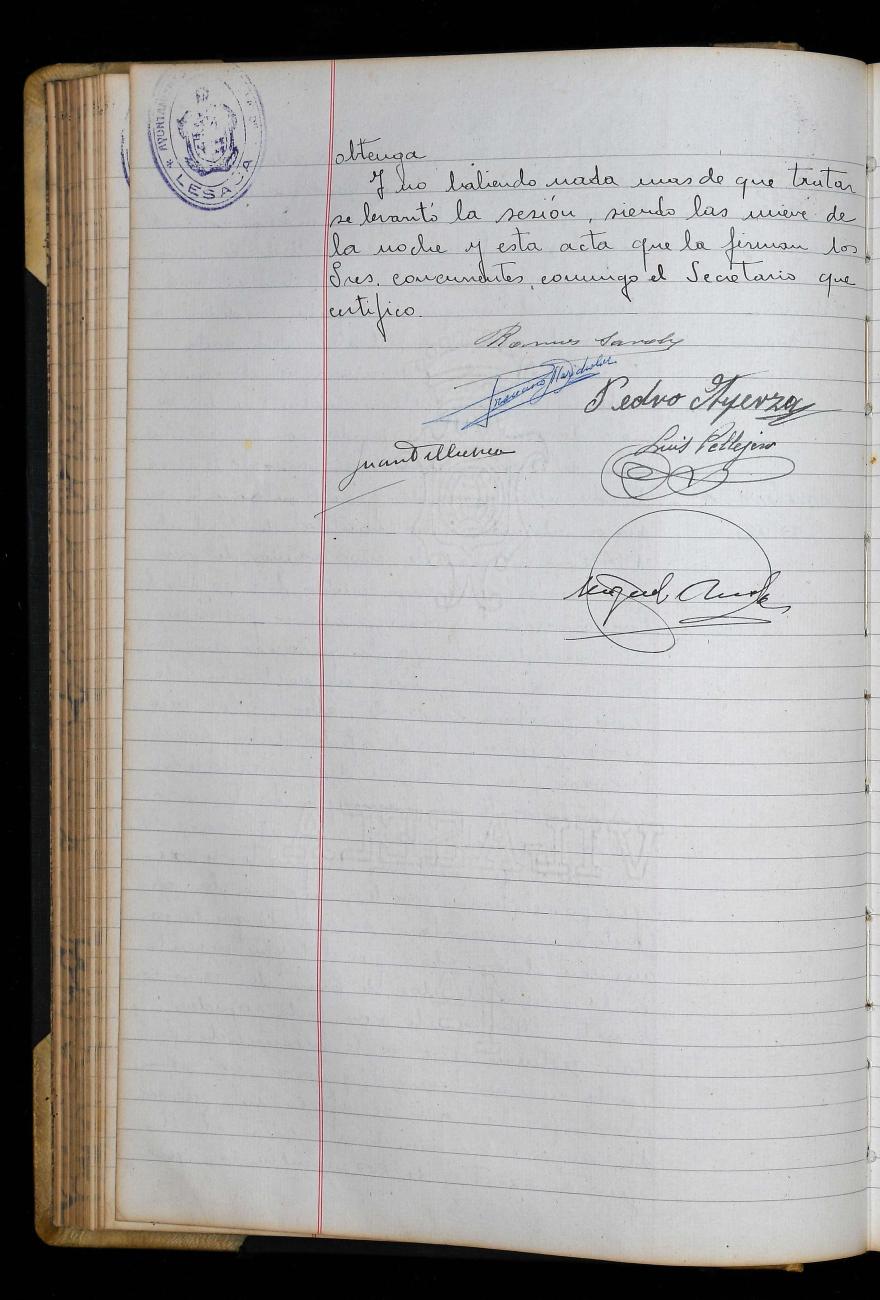 AYUNTAMIENTO
* LESACA
obtenga
Y no habiendo nada mas de que tratar
se levantó la sesión, siendo las nueve de
la noche y esta acta que la firman los
Sres. concurrentes, conmigo el Secretario que
certifico.
Francisco
Pedro Ayerza
Luis Pellejero
Juan
Miguel